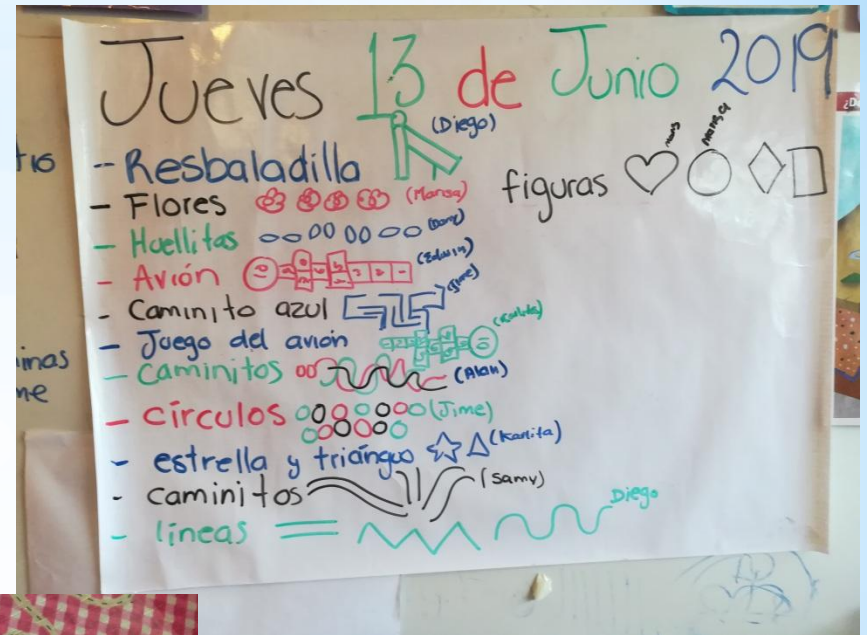 Jueves 13 de Junio 2019
- Resbaladilla (Diego)
- Flores (Marisa)
- Huellitas (Dany)
- Avión (Edwin)
- Caminito azul (Jime)
- Juego del avión (Karlita)
- Caminitos (Alan)
- círculos (Jime)
- estrella y triánguo (Karlita)
- caminitos (Samy)
- líneas Diego
figuras